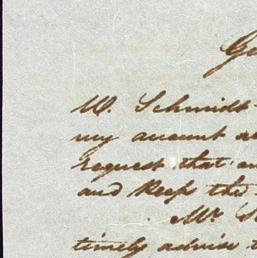 W. Schmidt
my account
request that
and Keep the
Mr
timely advise